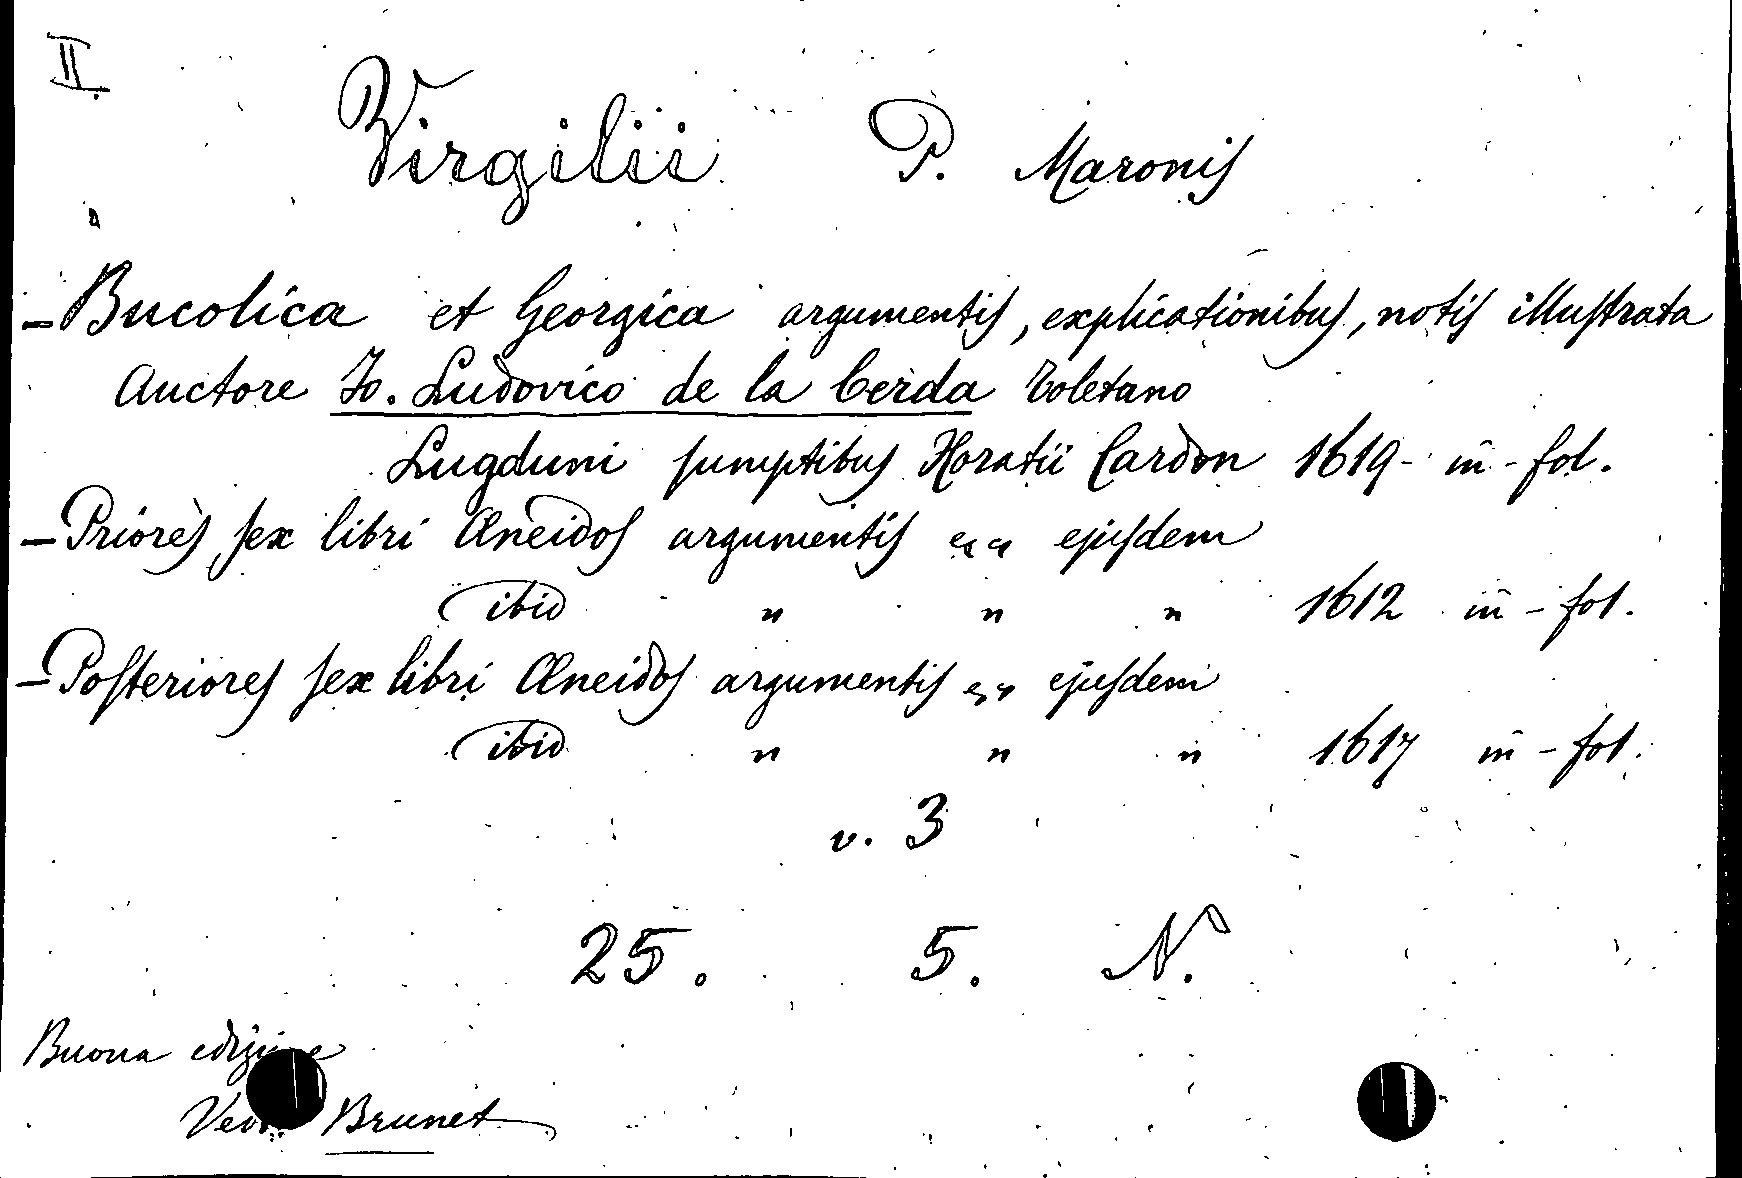 II.
Virgilii P. Maronis
- Bucolica et Georgica argumentis, explicationibus, notis illustrata
Auctore Jo. Ludovico de la Cerda Toletano
Lugduni sumptibus Horatii Cardon 1619 - in - fol.
- Priores sex libri Æneidos argumentis ejusdem
ibid " " " 1612 in - fol.
- Posteriores sex libri Æneidos argumentis ejusdem
ibid " " " 1617 in - fol.
v. 3
25. 5. N.
Buona edizione
Brunet